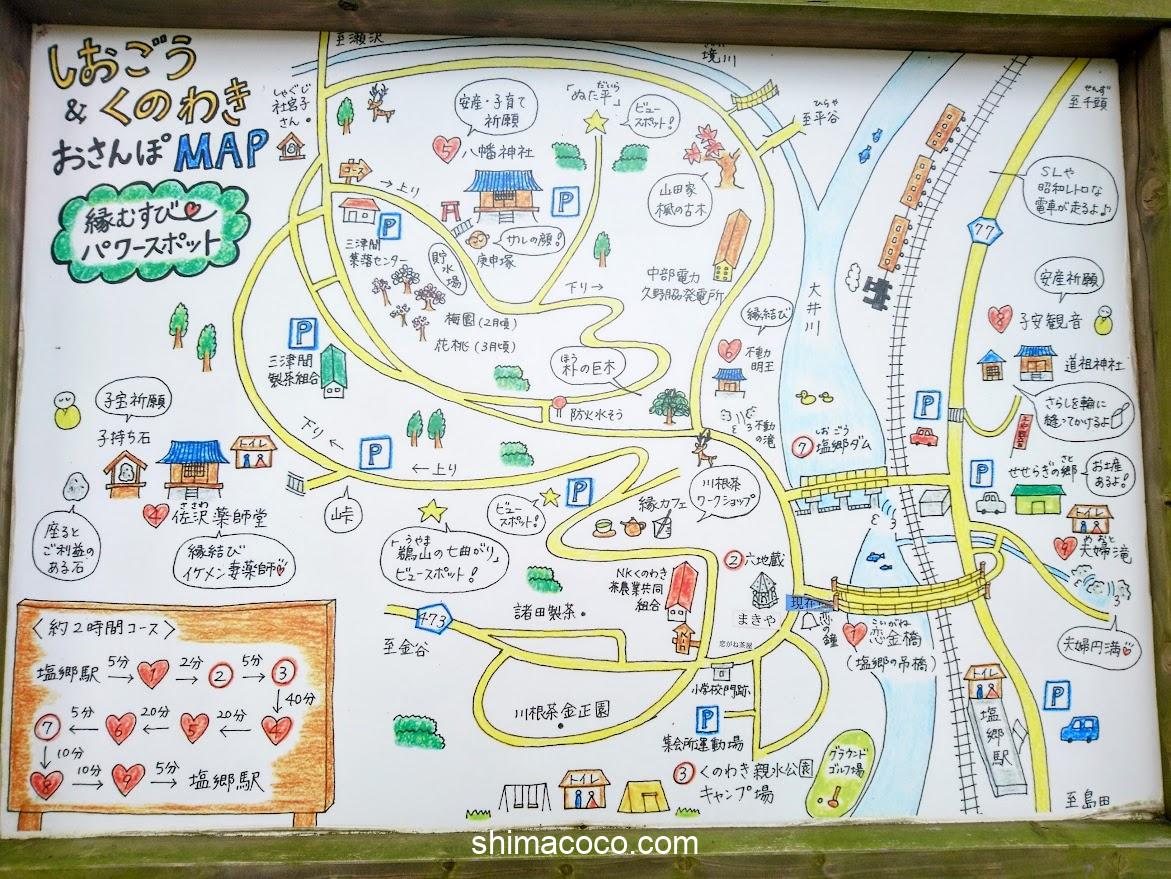 しおごう
& くのわき
おさんぽMAP
縁むすび
パワースポット
至瀬沢
しゃぐじ
社宮子
さん。
境川
ひらや
至平谷
せんず
至千頭
安産・子育て
祈願
5 八幡神社
だいら
「ぬた平」
ビュー
スポット!
コース
→上り
P
三津間
集落センター
サルの顔!
庚申塚
貯水場
梅園(2月頃)
花桃(3月頃)
下り→
P
山田家
楓の古木
中部電力
久野脇発電所
SLや
昭和レトロな
電車が走るよ♪
77
安産祈願
8 子安観音
道祖神社
さらしを輪に
縫ってかけるよ
縁結び
6 不動
明王
不動
の滝
大井川
ほう
朴の巨木
防火水そう
P
三津間
製茶組合
子宝祈願
子持ち石
トイレ
ささわ
4 佐沢薬師堂
座ると
ご利益の
ある石
縁結び
イケメン妻薬師
下り←
P
←上り
峠
ビュー
スポット!
P
とうやま
「鵜山の七曲がり」
ビュースポット!
縁カフェ
川根茶
ワークショップ
しおごう
7 塩郷ダム
P
P
さと
せせらぎの郷
お土産
あるよ!
トイレ
めおと
9 夫婦滝
夫婦円満
2 六地蔵
NKくのわき
茶農業共同
組合
諸田製茶。
まきや
現在
恋の鐘
こいがね
1 恋金橋
(塩郷の吊橋)
恋がね茶屋
473
至金谷
小学校門跡
川根茶金正園
P
集会所運動場
3 くのわき親水公園
キャンプ場
トイレ
グラウンド
ゴルフ場
トイレ
塩郷駅
P
至島田
〈約2時間コース〉
塩郷駅 5分→ 1 2分→ 2 5分→ 3
↓40分
7 5分← 6 20分← 5 20分← 4
↓10分
8 10分→ 9 5分→ 塩郷駅
shimacoco.com